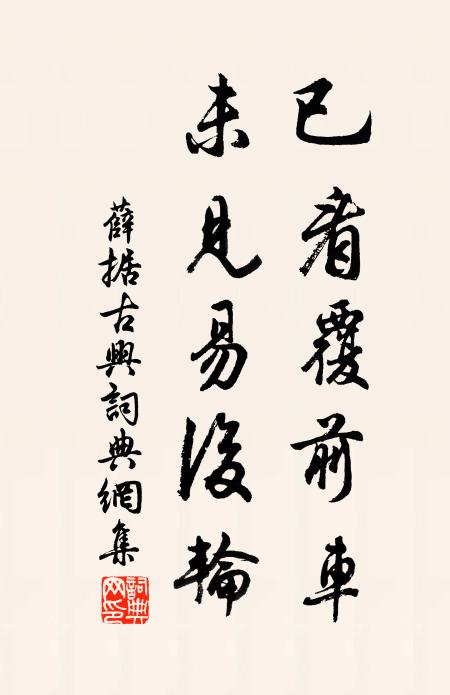 已看覆前車
未見易後輪
薛据古興詞典網集
詞典网印